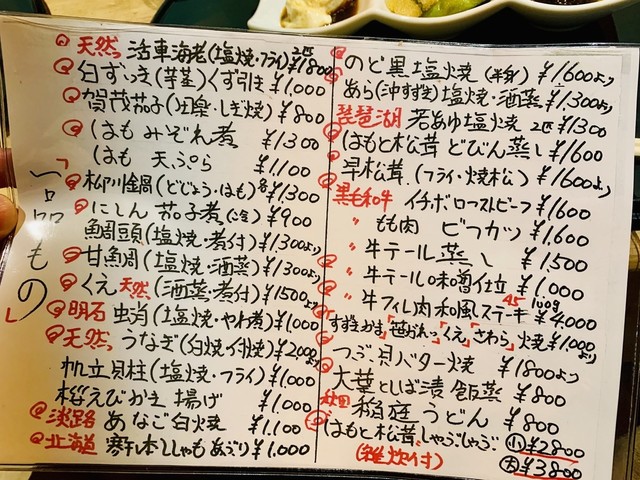 一品もの
天然 活車海老(塩焼・フライ)2匹¥1800
白ずいき(芋茎)くず引き ¥1,000
賀茂茄子(田楽・しぎ焼) ¥800
はも みぞれ煮 ¥1300
はも 天ぷら ¥1,100
柳川鍋(どじょう・はも)各¥1300
にしん 茄子煮 ¥900
鯛頭(塩焼・煮付)¥1,300より
甘鯛(塩焼・酒蒸)¥1300より
くえ 天然(酒蒸・煮付)¥1500より
明石 (塩焼・やわ煮)¥1,000
天然 うなぎ(白焼・付焼)¥2000より
帆立貝柱(塩焼・フライ)¥1,000
桜えびかき揚げ ¥1,000
淡路 あなご白焼 ¥1,100
北海道 寒干し本ししゃもあぶり ¥1,000
のど黒塩焼(半身)¥1600より
あら(沖すずき)塩焼・酒蒸 ¥1,300より
琵琶湖 若あゆ塩焼 2匹 ¥1300
はもと松茸 どびん蒸し ¥1600
早松茸(フライ・焼松)¥1600より
黒毛和牛 イチボローストビーフ ¥1600
〃 もも肉 ビフカツ ¥1,600
〃 牛テール蒸し ¥1,500
〃 牛テール味噌仕立 ¥1,000
〃 牛フィレ肉和風ステーキ A5 100g ¥4,000
すずきかま「笹がれい」「くえ」「さわら」焼 ¥1000より
つぶ貝バター焼 ¥1800より
大葉としば漬 飯蒸 ¥800
秋田 稲庭うどん ¥800
はもと松茸しゃぶしゃぶ 小 ¥2800
(雑炊付) 大 ¥3800